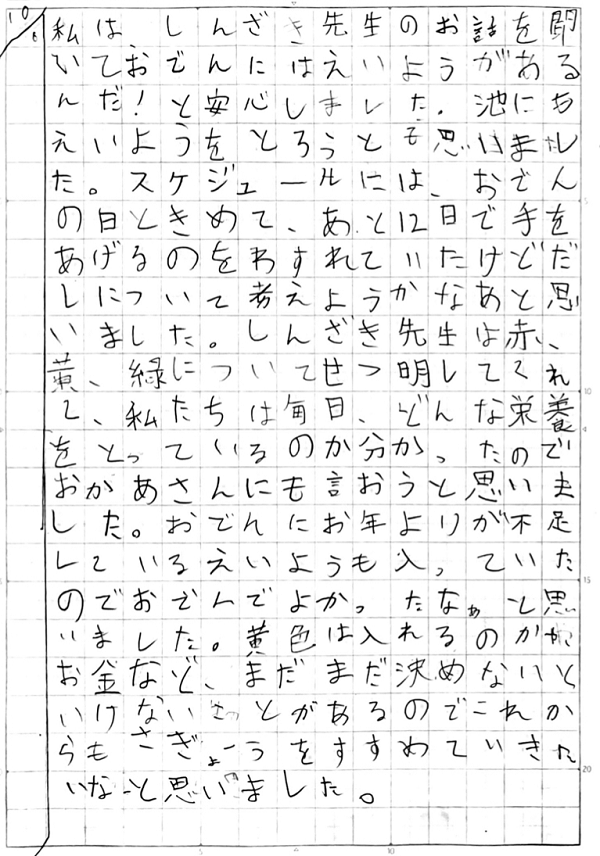 10
6
私は、しんざき先生のお話を聞
いておでんにはえいようがある
んだ!と安心しました。池にも
えいようをとろうとも思いまし
た。スケジュールには、おでん
の日ときめて、あと12日で手を
あげるのをわすれていたけどだ
しについて考えようかなあと思
いました。しんざき先生は赤、
黄、緑についてせつ明してくれ
て、私たちは毎日、どんな栄養
をとっているのか分かったので
おかあさんにも言おうと思いま
した。おでんにお年よりが不足
しているえいようも入っていた
のでおでんでよかったなぁと思
いました。黄色は入れるのかが、
お金など、まだまだ決めないと
いけないことがあるのでこれか
らもさぎょうをすすめていきた
いなーと思いました。